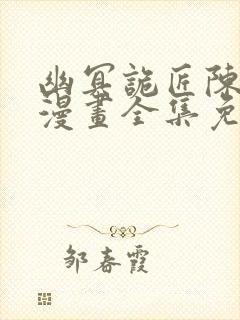 幽冥詭匠陳
漫畫全集免
邹春霞